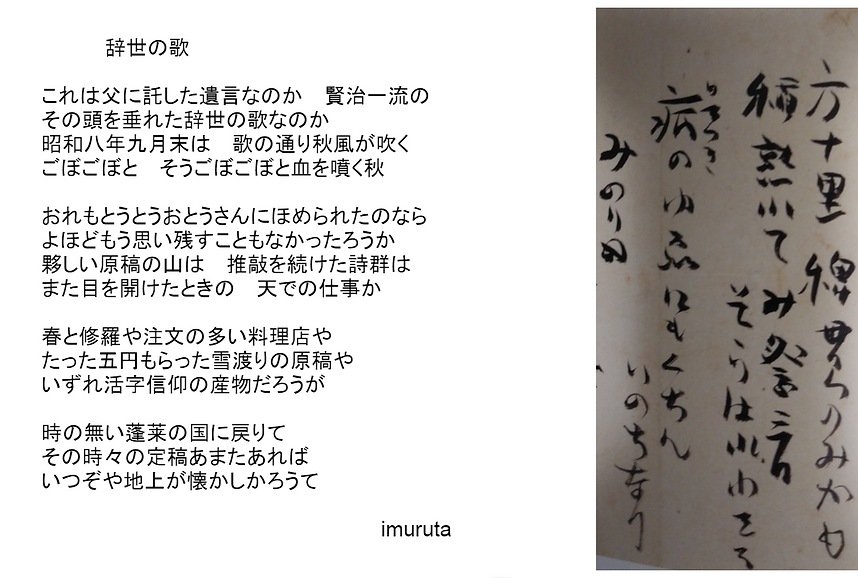 辞世の歌
これは父に託した遺言なのか　賢治一流の
その頭を垂れた辞世の歌なのか
昭和八年九月末は　歌の通り秋風が吹く
ごぼごぼと　そうごぼごぼと血を噴く秋
おれもとうとうおとうさんにほめられたのなら
よほどもう思い残すこともなかったろうか
夥しい原稿の山は　推敲を続けた詩群は
また目を開けたときの　天での仕事か
春と修羅や注文の多い料理店や
たった五円もらった雪渡りの原稿や
いずれ活字信仰の産物だろうが
時の無い蓬莱の国に戻りて
その時々の定稿あまたあれば
いつぞや地上が懐かしかろうて
imuruta
方十里稗貫のみかも
稲熟れてみ祭三日
そらはれわたる
いたつき
病のゆゑにもくちん
いのちなり
みのり